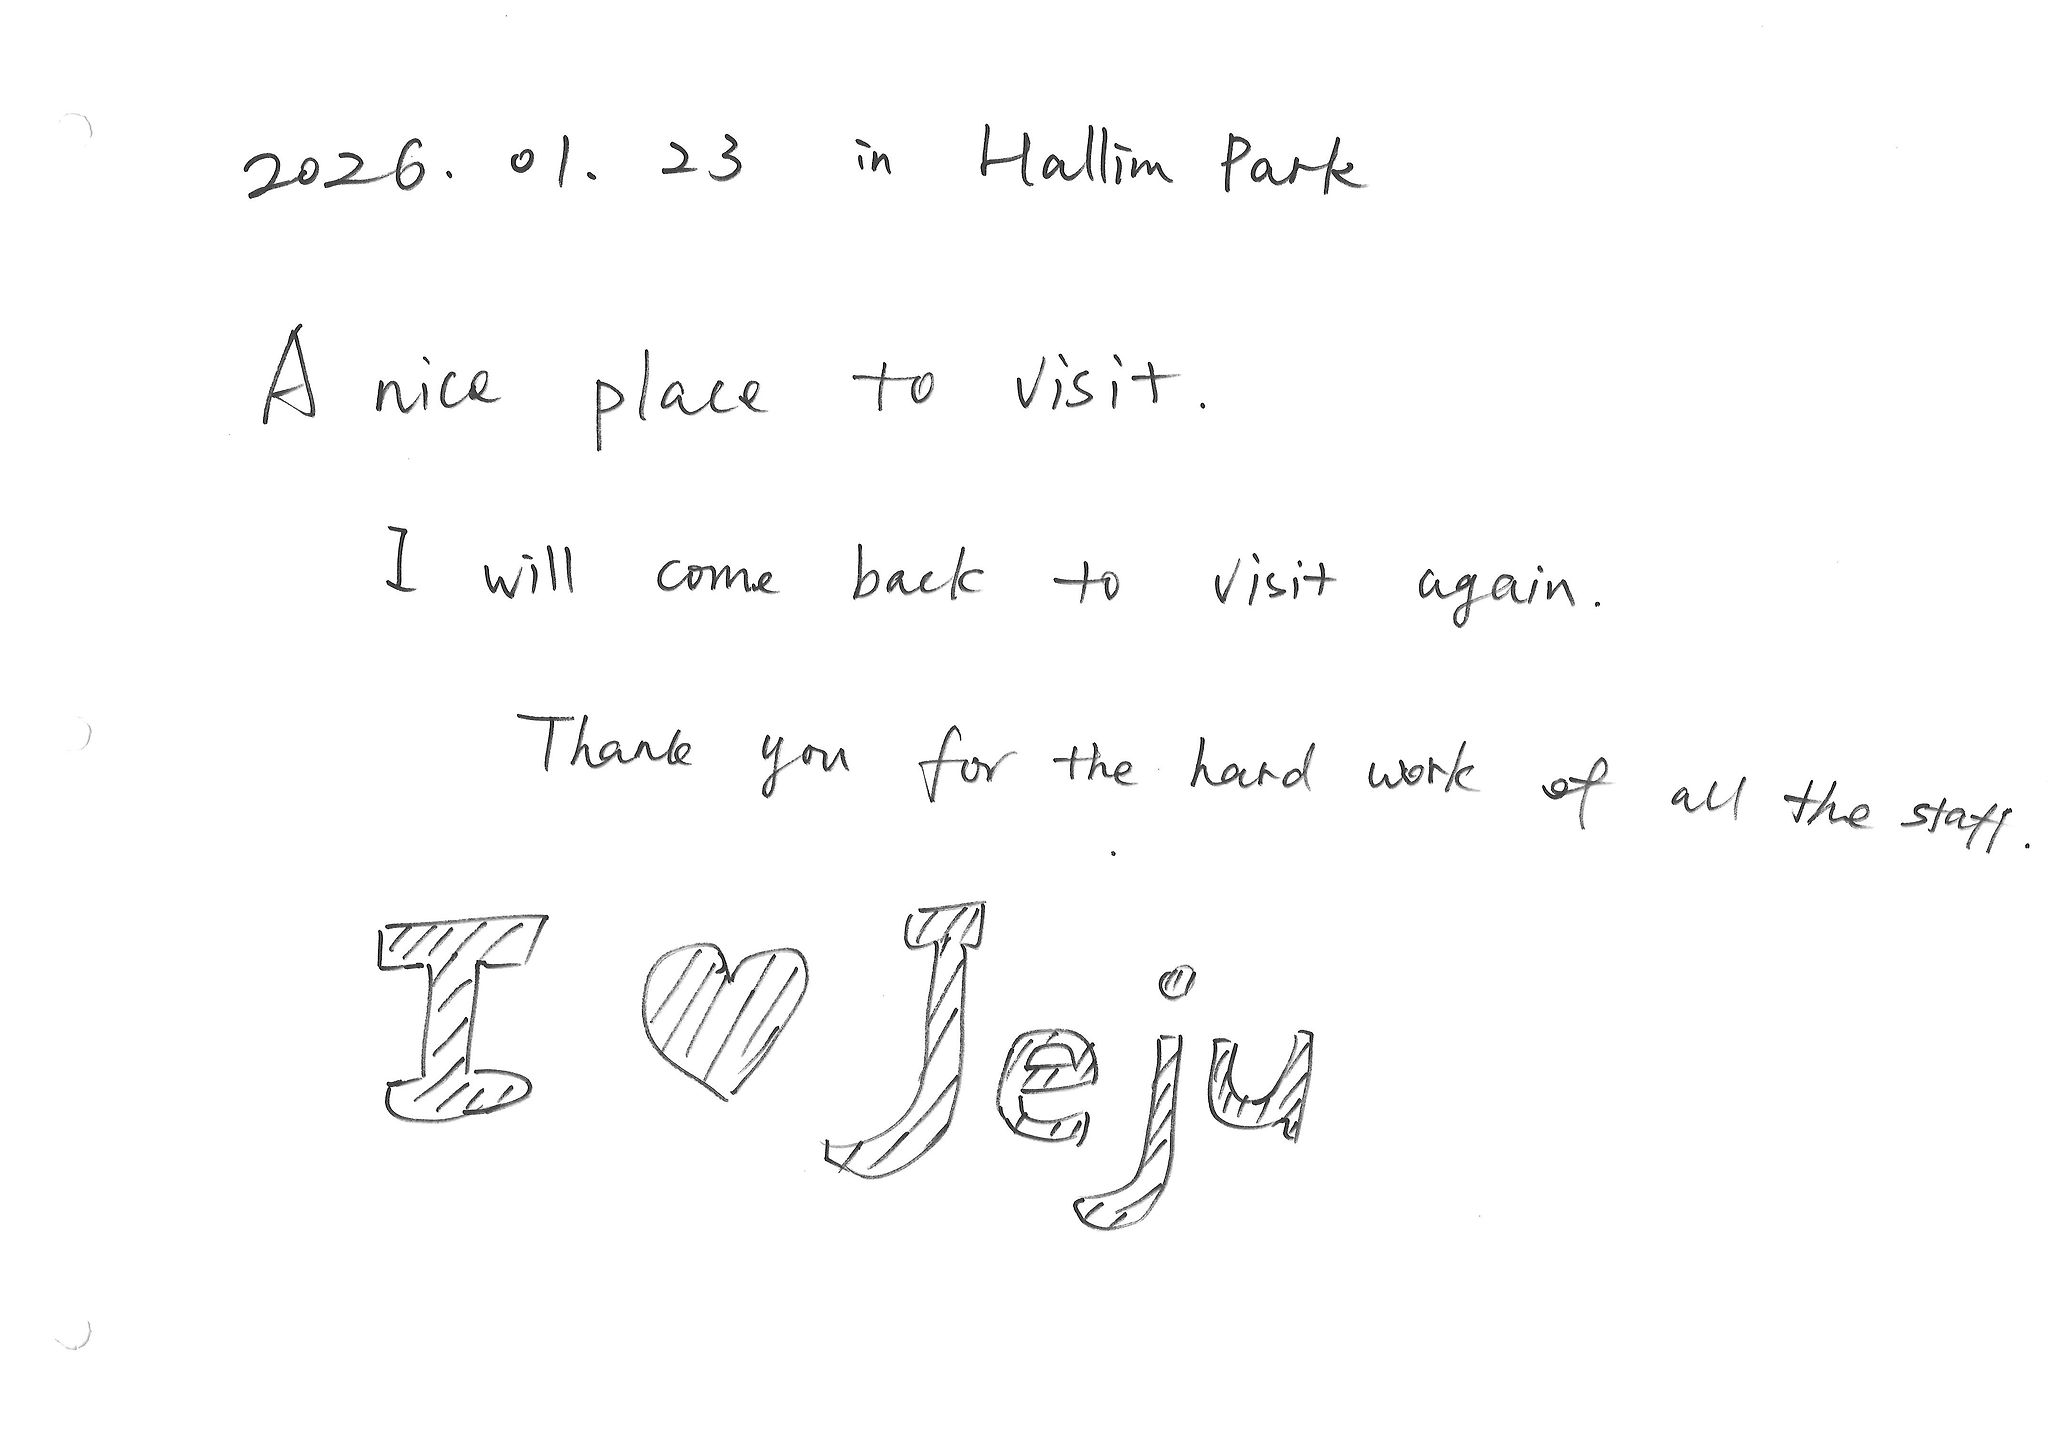 2026. 01. 23 in Hallim Park
A nice place to visit.
I will come back to visit again.
Thank you for the hard work of all the staff.
I ♥ Jeju